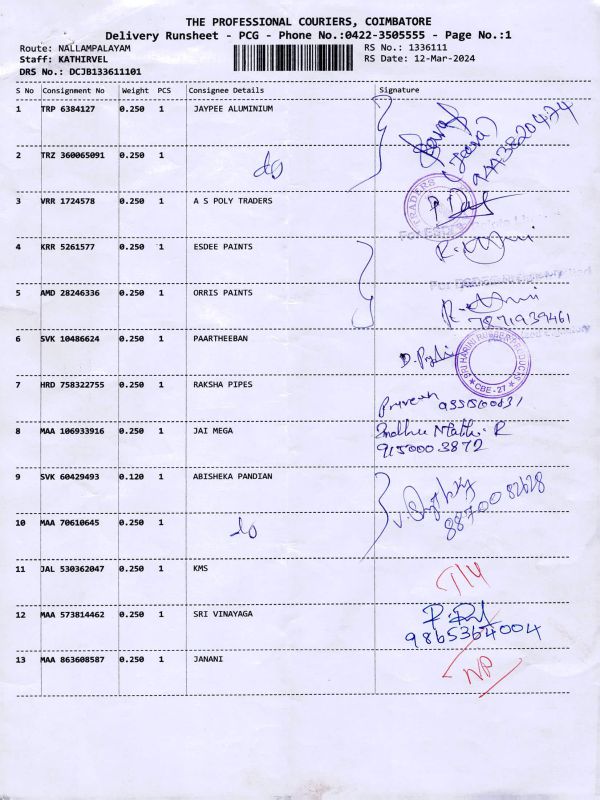 THE PROFESSIONAL COURIERS, COIMBATORE
Delivery Runsheet - PCG - Phone No.:0422-3505555 - Page No.:1
Route: NALLAMPALAYAM RS No.: 1336111
Staff: KATHIRVEL RS Date: 12-Mar-2024
DRS No.: DCJB133611101
S No Consignment No Weight PCS Consignee Details Signature
1 TRP 6384127 0.250 1 JAYPEE ALUMINIUM
2 TRZ 360065091 0.250 1 do
3 VRR 1724578 0.250 1 A S POLY TRADERS
TRADERS
4 KRR 5261577 0.250 1 ESDEE PAINTS
5 AMD 28246336 0.250 1 ORRIS PAINTS
7871939461
6 SVK 10486624 0.250 1 PAARTHEEBAN
SRI HARINI RUBBER PRODUCTS
CBE-27
7 HRD 758322755 0.250 1 RAKSHA PIPES
Praveen
8 MAA 106933916 0.250 1 JAI MEGA
Indhu Mathi. R
9150003872
9 SVK 60429493 0.120 1 ABISHEKA PANDIAN
8870082628
10 MAA 70610645 0.250 1 do
11 JAL 530362047 0.250 1 KMS
12 MAA 573814462 0.250 1 SRI VINAYAGA
9865364004
13 MAA 863608587 0.250 1 JANANI
NP